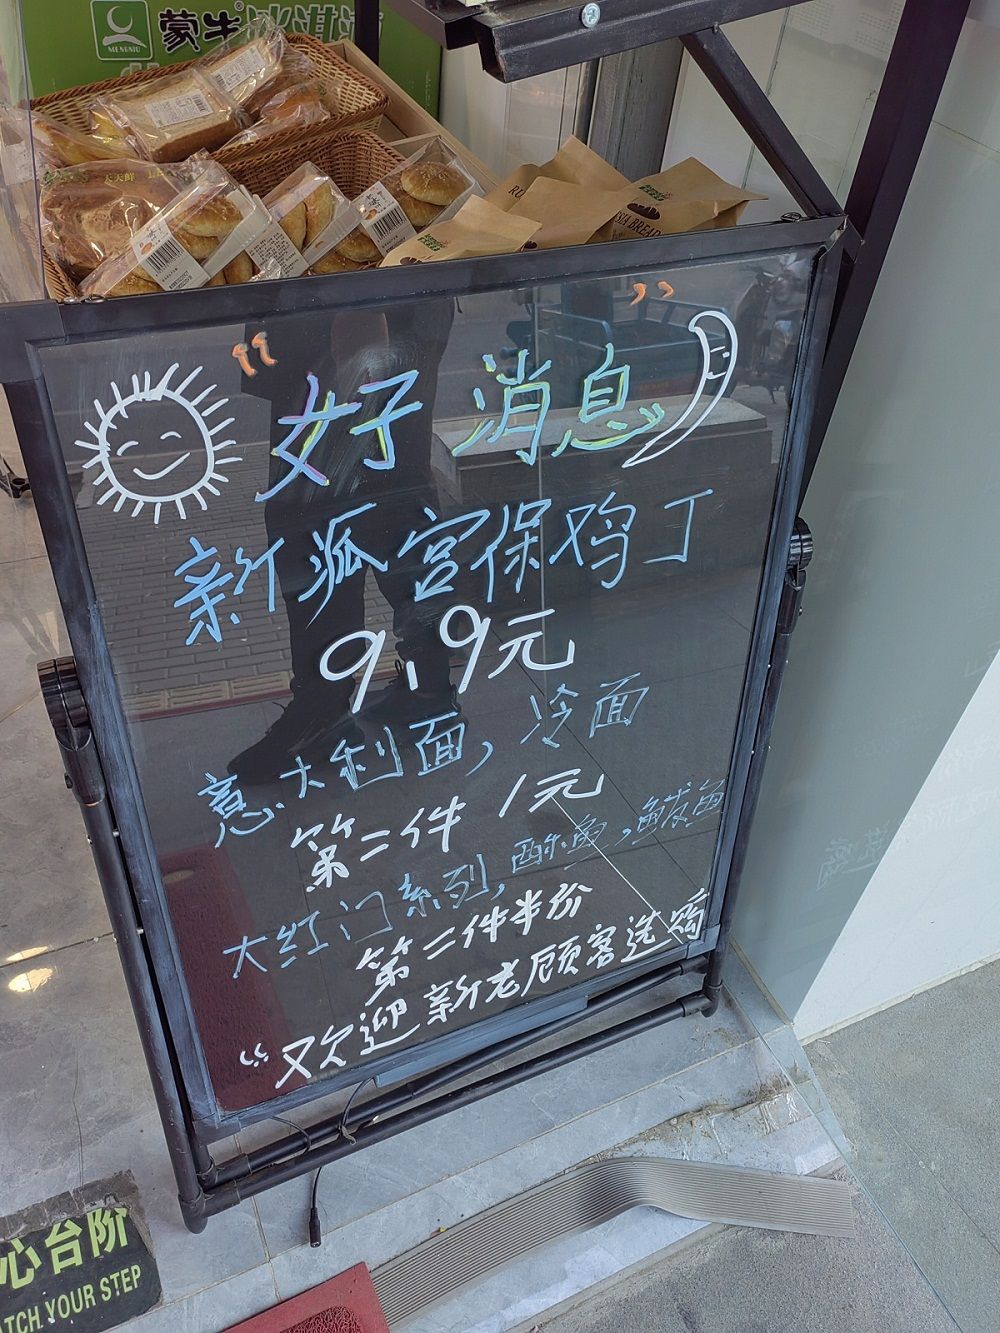 蒙牛®冰淇淋
MENGNIU
天天鲜
SIA BREAD
“好消息”
新派宫保鸡丁
9.9元
意大利面,冷面
第二件1元
大红门系列,酥鱼,鱿鱼
第二件半价
“欢迎新老顾客选购
心台阶
TCH YOUR STEP